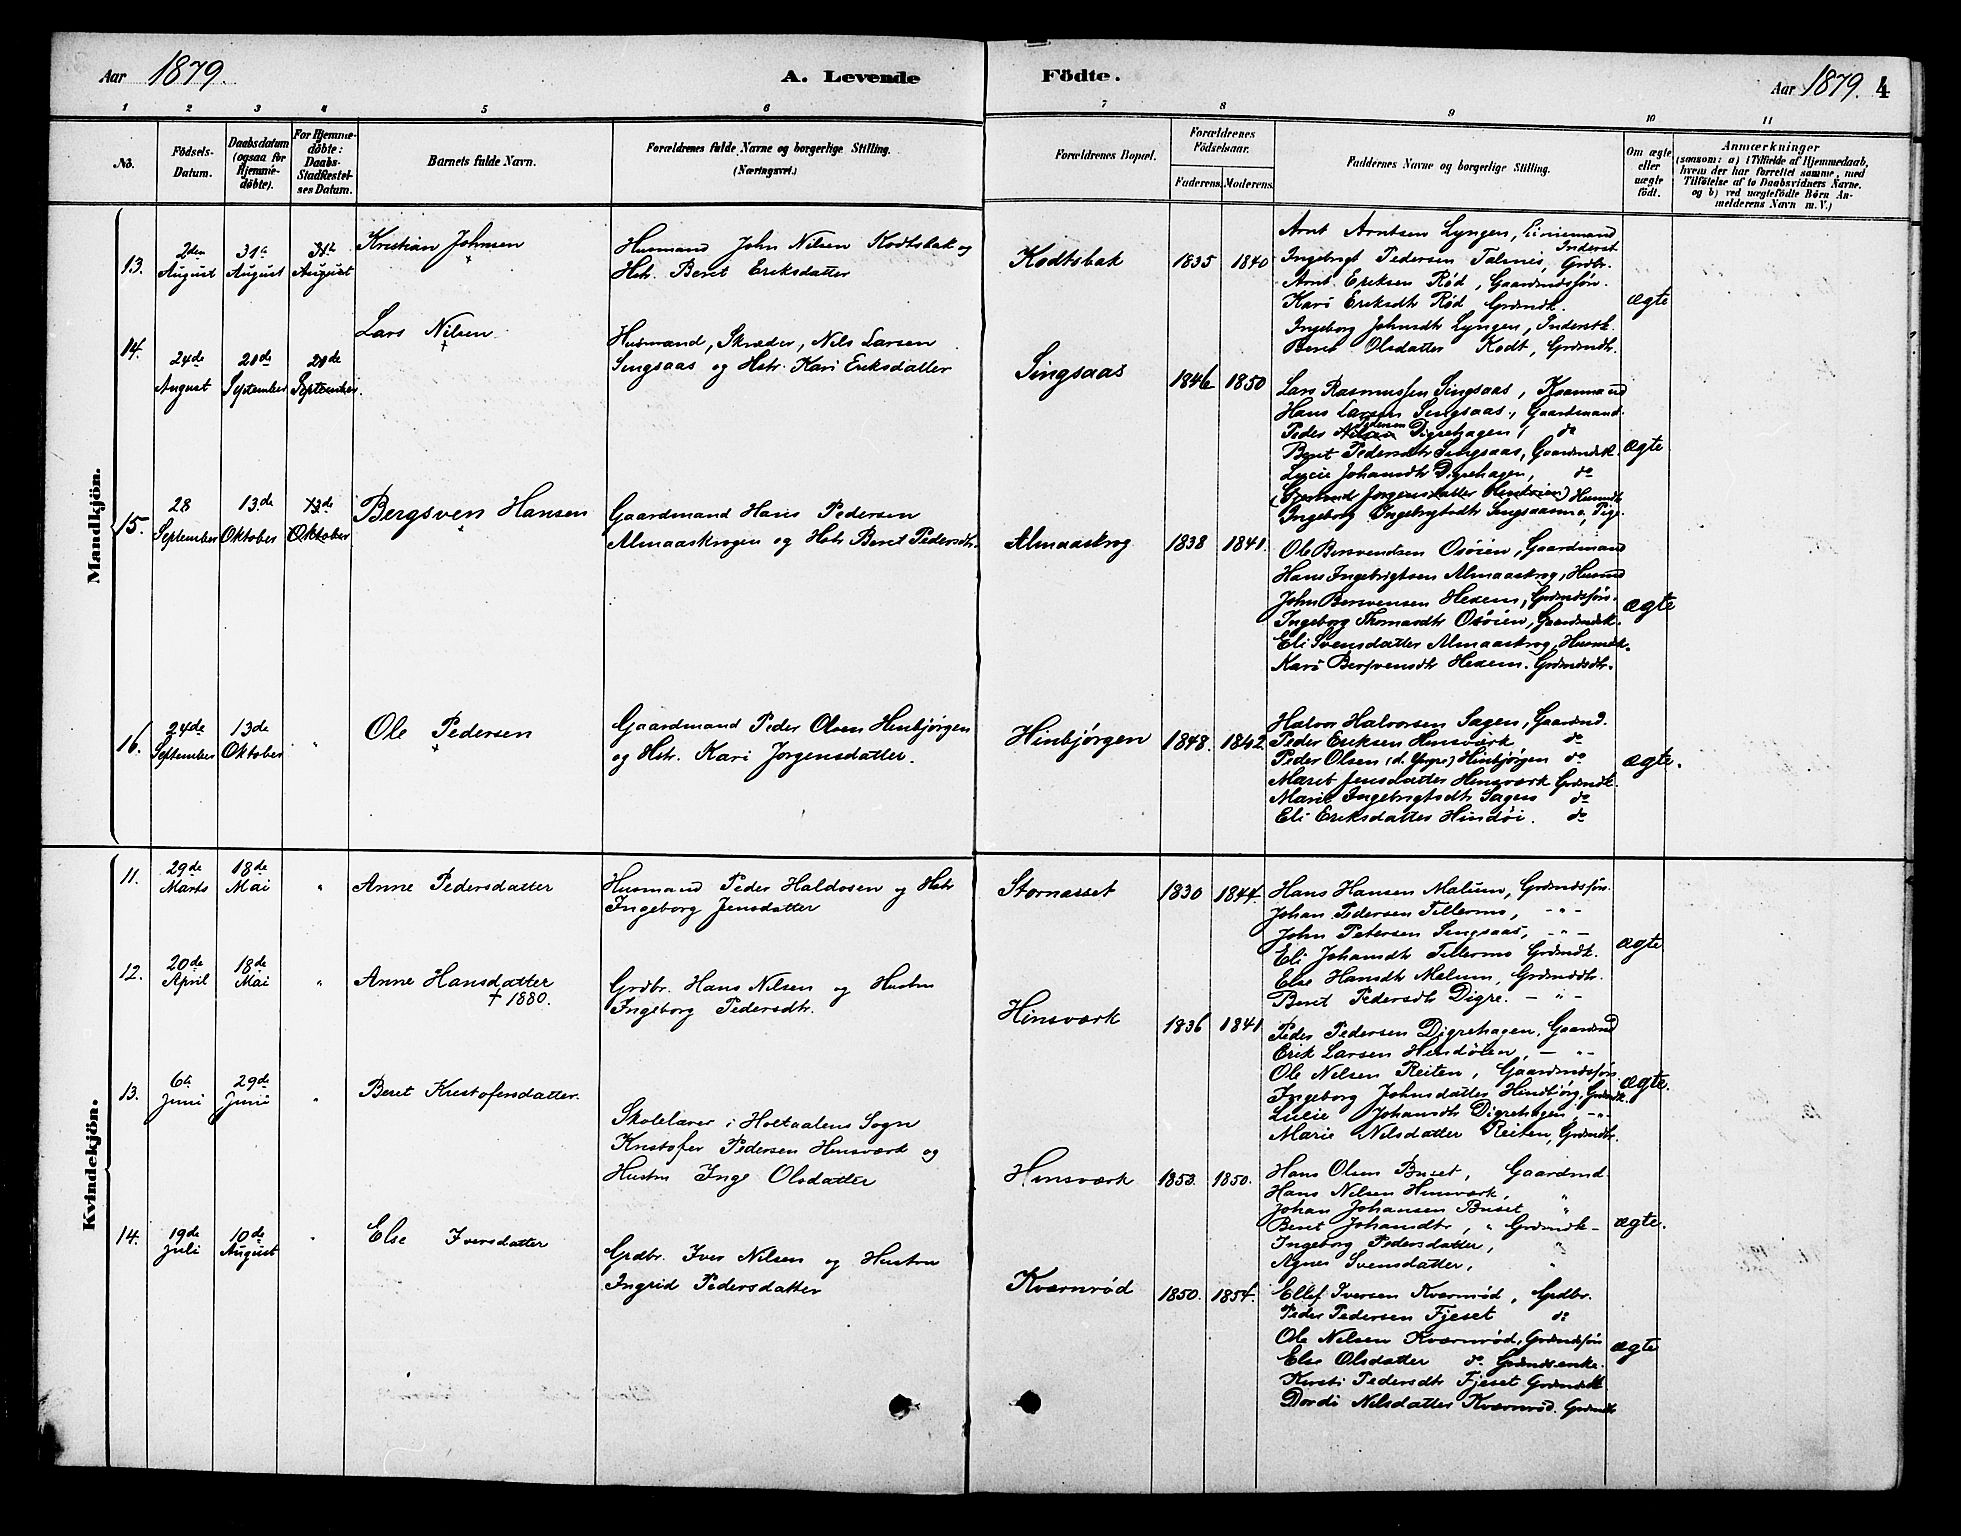 Aar 1879.
A. Levende
Födte.
Aar 1879. 4
1 2 3 4 5 6 7 8 9 10 11
No.
Födsels-
Datum.
Daabsdatum
(ogsaa for
Hjemme-
döbte).
For Hjemme-
döbte:
Daabs-
Stadfæstel-
ses Datum.
Barnets fulde Navn.
Forældrenes fulde Navne og borgerlige Stilling.
(Næringsvei.)
Forældrenes Bopæl.
Forældrenes
Födselsaar.
Faderens. Moderens.
Faddernes Navne og borgerlige Stilling.
Om ægte
eller
uægte
födt.
Anmærkninger
(saasom: a) i Tilfælde af Hjemmedaab,
hvem der har forrettet samme, med
Tilföielse af to Daabsvidners Navne,
og b) ved uægtefödte Börn An-
melderens Navn m. V.)
Mandkjön.
13.
2den
August
31te
August
31te
August
Kristian Johnsen
Husmand John Nilsen Kodtsbak og
Hstr. Beret Eriksdatter
Kodtsbak
1835 1840
Arnt Arntsen Lyngen,
Inderst
Ingebrigt Pedersen Talmis, Grdbr.
Arnt Eriksen Rød, Gaardmdssøn.
Kari Eriksdtr Rød, Grdmdk.
Ingeborg Johnsdtr Lyngen, Inderstk.
Beret Olsdatter Kodt, Grdmdtr.
ægte
14.
24de
August
21de
September
21de
September
Lars Nilsen
Husmand, Skræder, Nils Larsen
Singsaas og Hstr. Kari Eriksdatter
Singsaas
1846 1850
Lars Rasmussen Singsaas,
Hans Larsen Singsaas, Gaardmand.
Pedersen
Peder Nilsen Digrehagen, do
Beret Pedersdtr Singsaas, Gaardmdk.
Lucie Johansdtr Digrehagen, do
Jorgensdatter
Ingeborg Ingebrigtsdtr Singsaasmo, Pige.
ægte
15.
28
September
13de
Oktober
13de
Oktober
Bergsven Hansen
Gaardmand Hans Pedersen
Almaaskrogen og Hstr Beret Pedersdtr.
Almaaskrog
1838 1841.
Ole Bersvendsen Osøien, Gaardmand
Hans Ingebrigtsen Almaaskrog, Husmd
John Bersvensen Hexem, Grdmdssøn.
Ingeborg Thomasdtr Osøien, Gaardmdk.
Eli Svensdatter Almaaskrog, Husmdk.
Kari Bersvensdtr Hexem. Grdmdsdtr.
ægte
16.
24de
September
13de
Oktober
"
Ole Pedersen
Gaardmand Peder Olsen Hinbjørgen
og Hstr. Kari Jorgensdatter.
Hinbjørgen
1848. 1842.
Halvor Halvorsen Sagen, Gaardmd.
Peder Eriksen Hinsværk do
Peder Olsen (d. Yngre) Hinbjørgen do
Maret Jensdatter Hinsværk Grdmdk.
Marie Ingebrigtsdtr Sagen do
Eli Eriksdatter Hindøi. do
ægte.
Kvindekjön.
11.
29de
Marts
18de
Mai
"
Anne Pedersdatter
Husmand Peder Haldosen og Hstr
Ingeborg Jensdatter
Stornæsset
1830 1844.
Hans Hansen Malum, Grdmdssøn.
Johan Pedersen Tillermo, -"-
John Petersen Singsaas, -"-
Eli Johansdtr Tillermo Grdmdk.
Else Hansdtr Malum, Grdmddtr.
Beret Pedersdtr Digre. -"-
ægte
12.
20de
April
18de
Mai
"
Anne Hansdatter
† 1880.
Grdbr. Hans Nilsen og Hustru
Ingeborg Pedersdtr.
Hinsværk
1836 1841
Peder Pedersen Digrehagen, Gaardmd
Erik Larsen Hindølen, -"-
Ole Nilsen Reiten, Gaardmdssøn
Ingeborg Johnsdatter Hindbjørg, Grdmdk.
Lucie Johansdtr Digrehagen, -"-
Marie Nilsdatter Reiten, Grdmdtr.
ægte.
13.
6te
Juni
29de
Juni
"
Beret Kristofersdatter.
Skolelærer i Holtaalens Sogn
Kristofer Pedersen Hinsværk og
Hustru Inge Olsdatter
Hinsværk
1853. 1850.
Hans Olsen Buset, Gaardmd.
Hans Nilsen Hinsværk, "
Johan Johansen Buset "
Beret Johansdtr, " Grdmdk-
Ingeborg Pedersdatter, "
Agnes Svensdatter, "
ægte.
14.
19de
Juli
10de
August
"
Else Iversdatter
Grdbr. Iver Nilsen og Hustru
Ingrid Pedersdatter
Kværnrød
1850. 1854.
Ellef Iversen Kværnrød, Grdbr.
Peder Pedersen Fjeset do
Ole Nilsen Kværnrød, Grdmdssøn
Else Olsdatter do. Grdmdsenke.
Kirsti Pedersdtr Fjeset Grdmdk
Dordi Nilsdatter Kværnrød. Grdmdtr
ægte